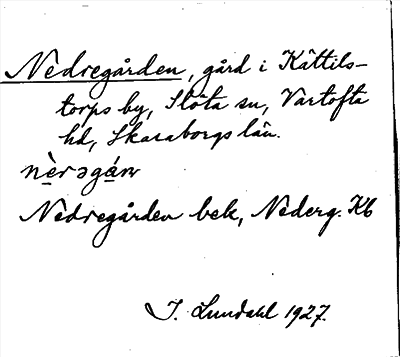 Nedregården, gård i Kättils-
torps by, Slöta sn, Vartofta
hd, Skaraborgs län.
nèrəgánː
Nedregården bek, Nederg. Kb
I. Lundahl 1927.